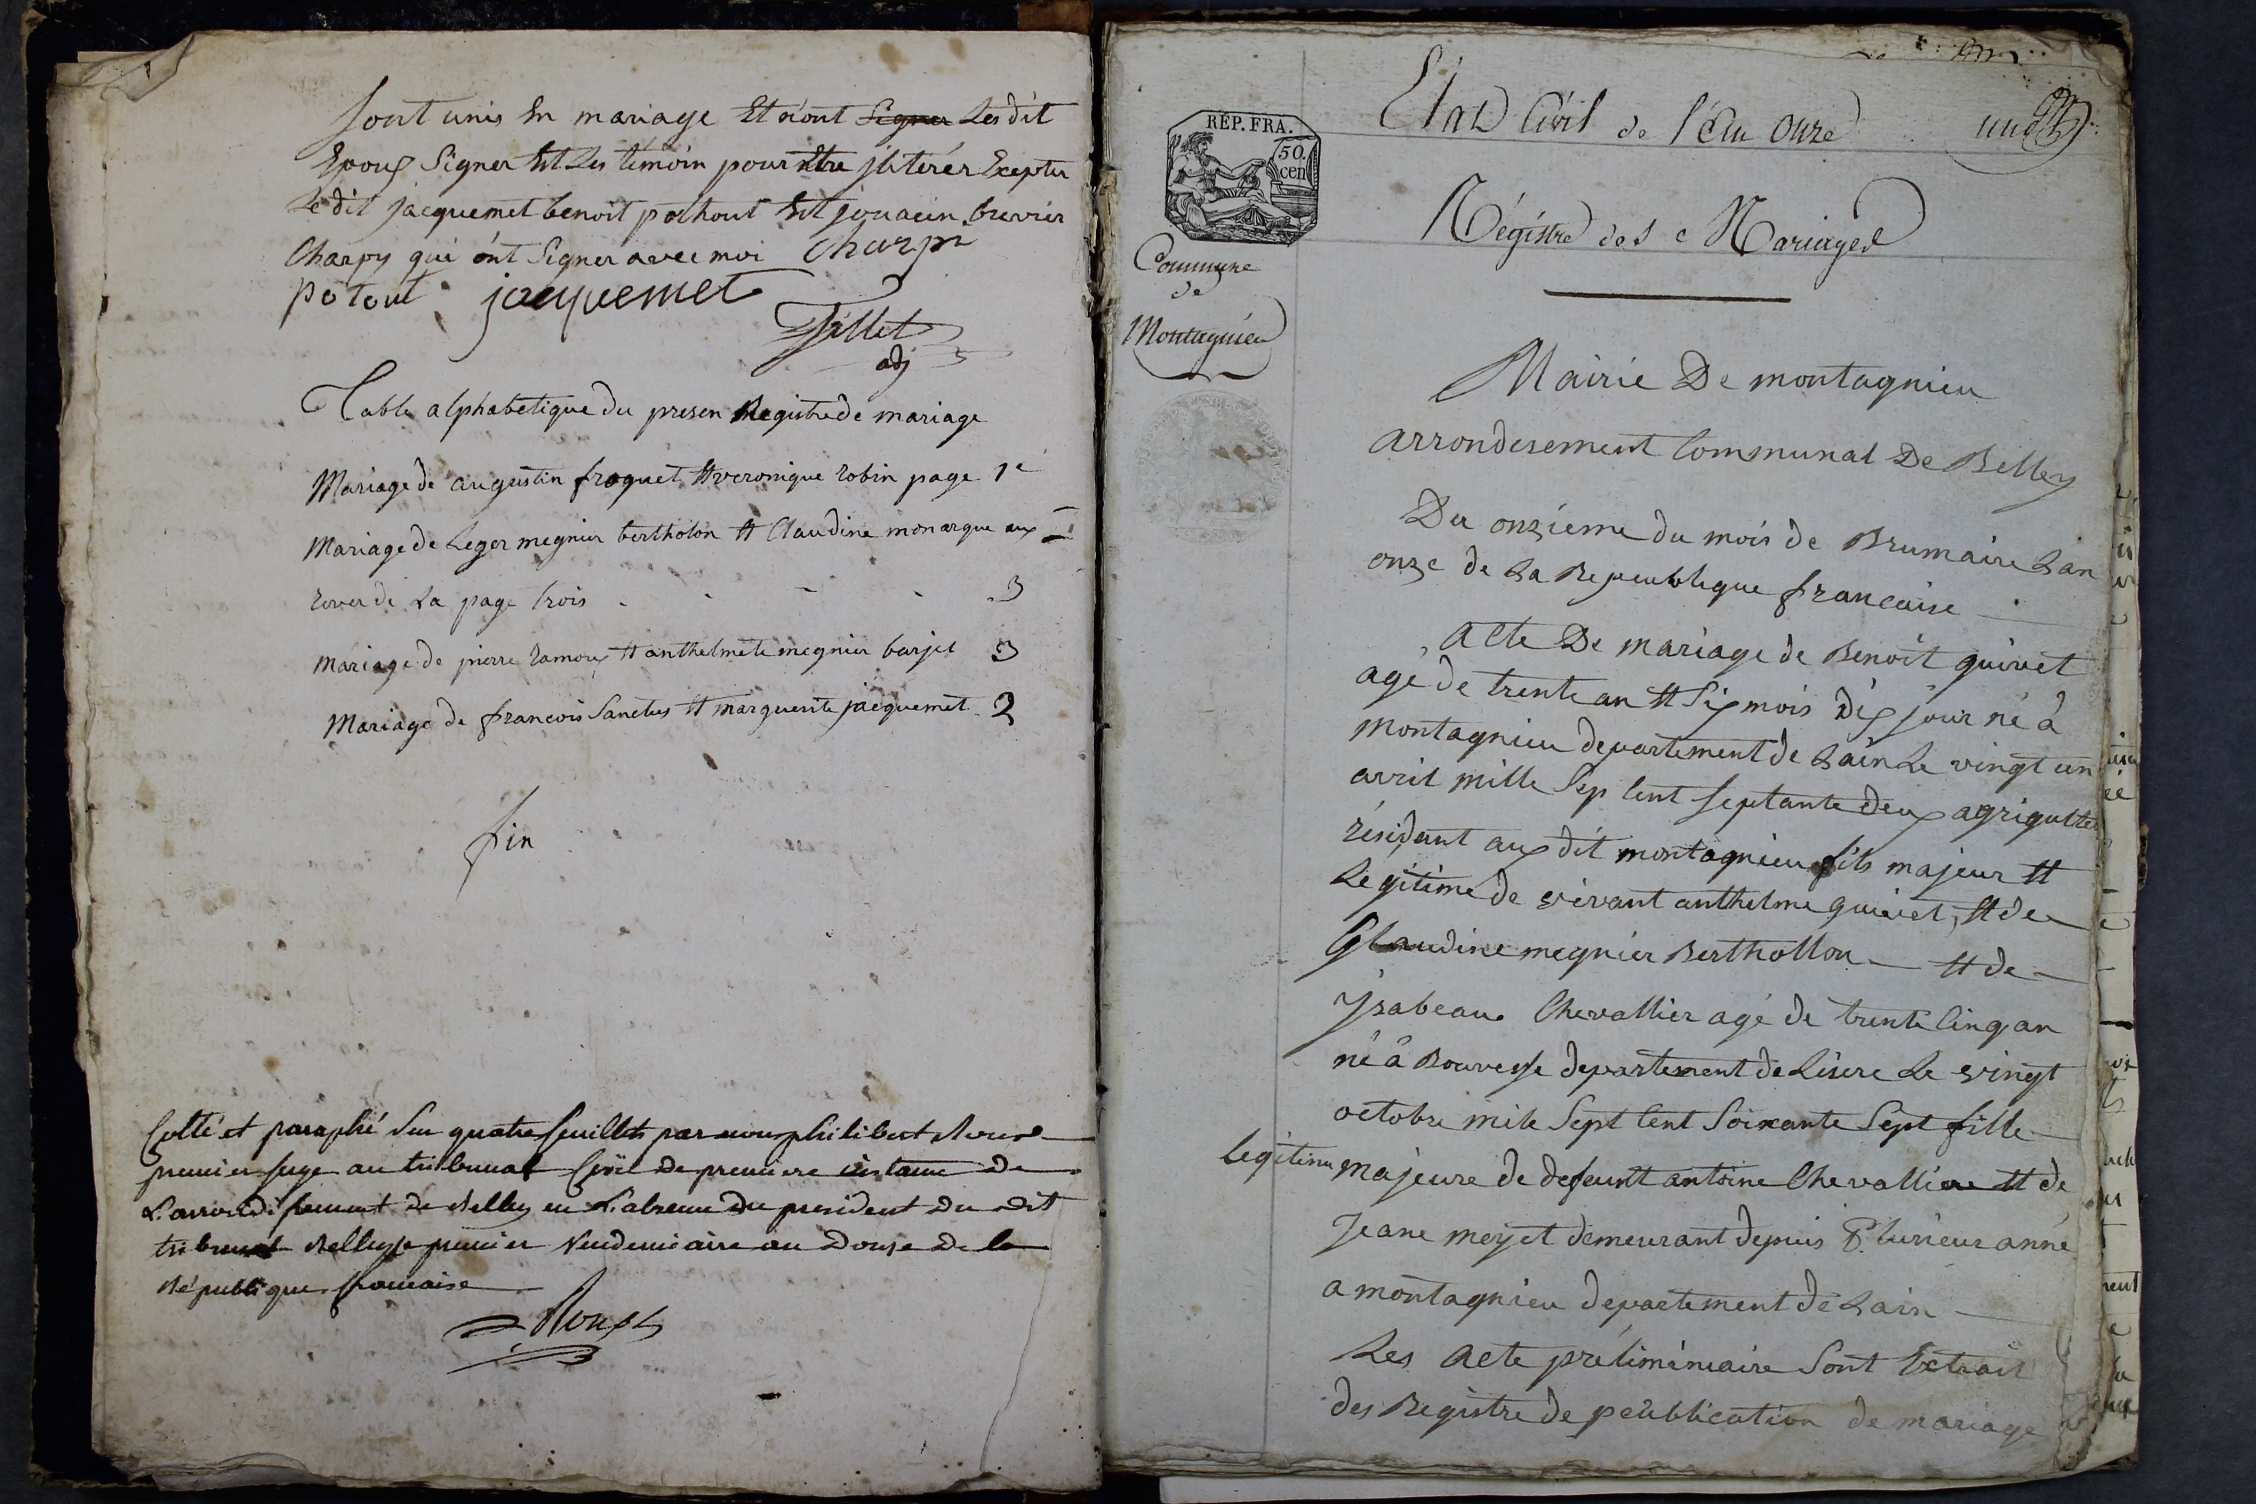 sont unis En mariage Et n'ont Signer Les dit
Epoux Signer Et Les témoin pour Etre jliterér Excepter
Le dit jacquemet benoit pothout Et jouacin brevier
Charpy qui ónt Signer avec moi Charpi
potout jacquemet
Tillet
adj
Table alphabetique du presen Registre de mariage
Mariage de augustin froquet Et veronique robin page 1e
Mariage de Leger megnier bertholon Et Claudine monarque aux
rover de La page trois 3
Mariage de pierre ramoux Et anthelmete megnier barjet 3
Mariage de francois Sanctus Et marguerite jacquemet 2
fin
Cotté et paraphé Sur quatre feuillets par nous philibert Roux
premier juge au tribunal Civil de premiere instance de
L'arrondissement de Belley en L'absence du president du dit
tribunal Belley le premier Vendemiaire an Douze de la
République francaise
Roux
État Civil de l'An Onze une
RÉP. FRA.
50.
cen
Régistre des Mariages
Commune
de
Montagnieu
Mairie De montagnieu
arrondisement Communal De Belley
Du onzieme du mois de Brumaire Lan
onze de La Republique francaise
Acte De mariage de Benoit quinet
agé de trente an Et Six mois Dix jour né à
Montagnieu departement de Lain Le vingt un
avril mille Sep Cent septante deux agriqulter
résidant aux dit montagnieu fils majeur Et
Légitime de vivant anthelme quinet, Et de
Glaudine megnier Berthollon Et de
Ysabeau Chevallier agé de trente Cinq an
né à Bouvesse departement de Lisere Le vingt
octobre mile Sept Cent Soixante Sept fille
Legitime majeure de defeunt antoine Chevallier Et de
Jeane meyet demeurant depuis Plurieur anné
a montagnieu departement de Lain
Les Acte préliminiaire Sont Extrait
des Registre de peublication de mariage